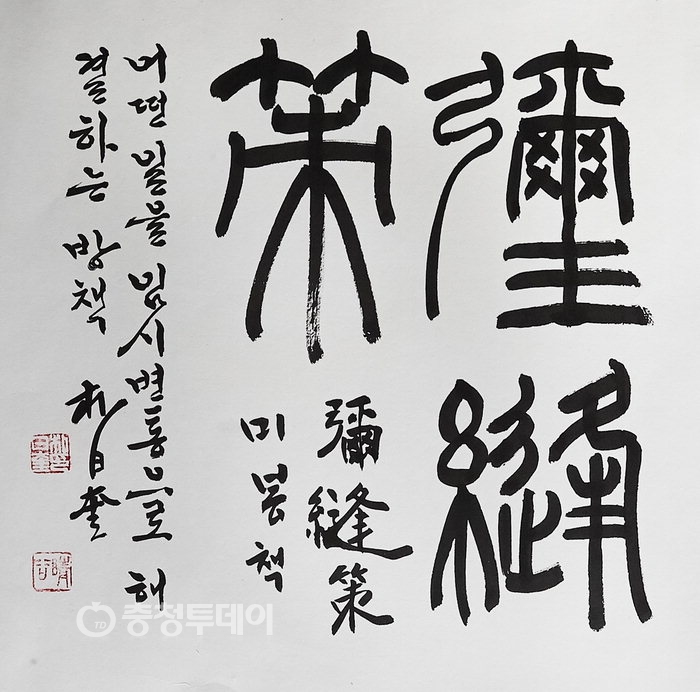 彌縫
策
彌縫策
미봉책
어떤 일을 임시변통으로 해
결하는 방책 朴日奎
충청투데이